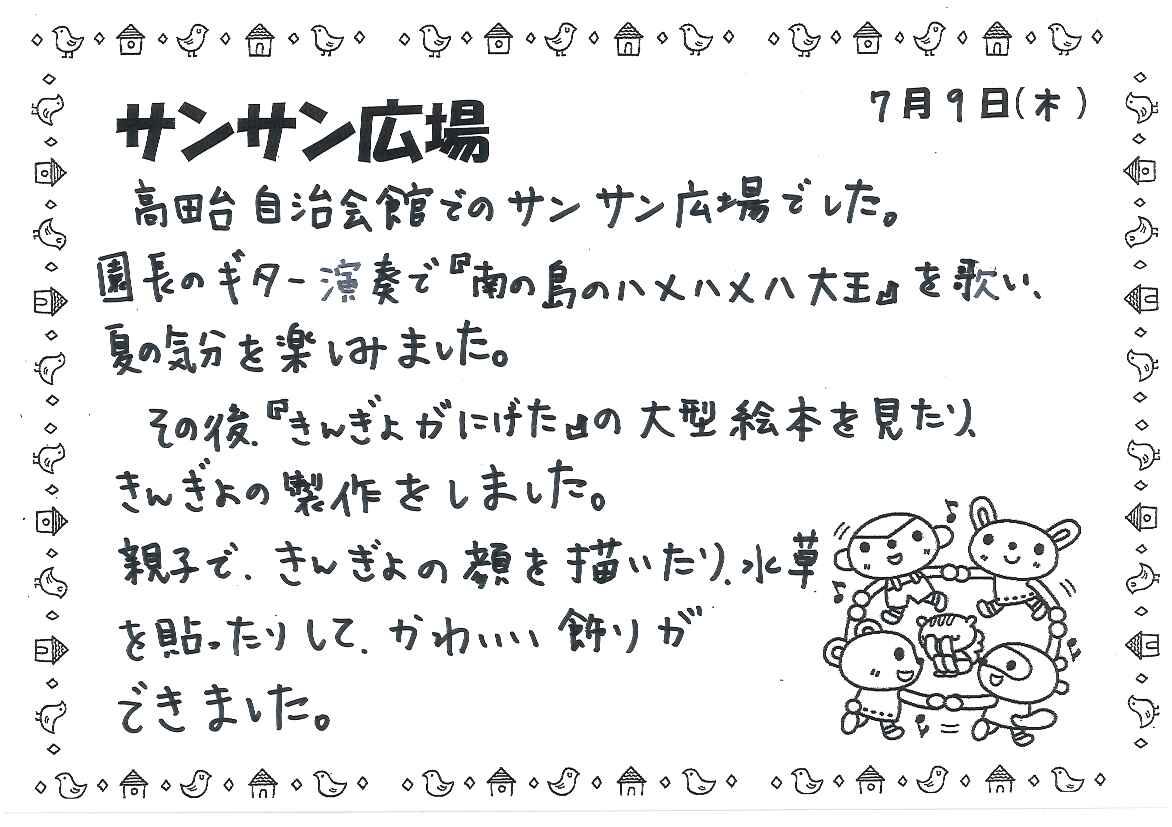 7月9日(木)
サンサン広場
高田台自治会館でのサンサン広場でした。
園長のギター演奏で『南の島のハメハメハ大王』を歌い、
夏の気分を楽しみました。
その後、『きんぎょがにげた』の大型絵本を見たり、
きんぎょの製作をしました。
親子で、きんぎょの顔を描いたり、水草
を貼ったりして、かわいい飾りが
できました。